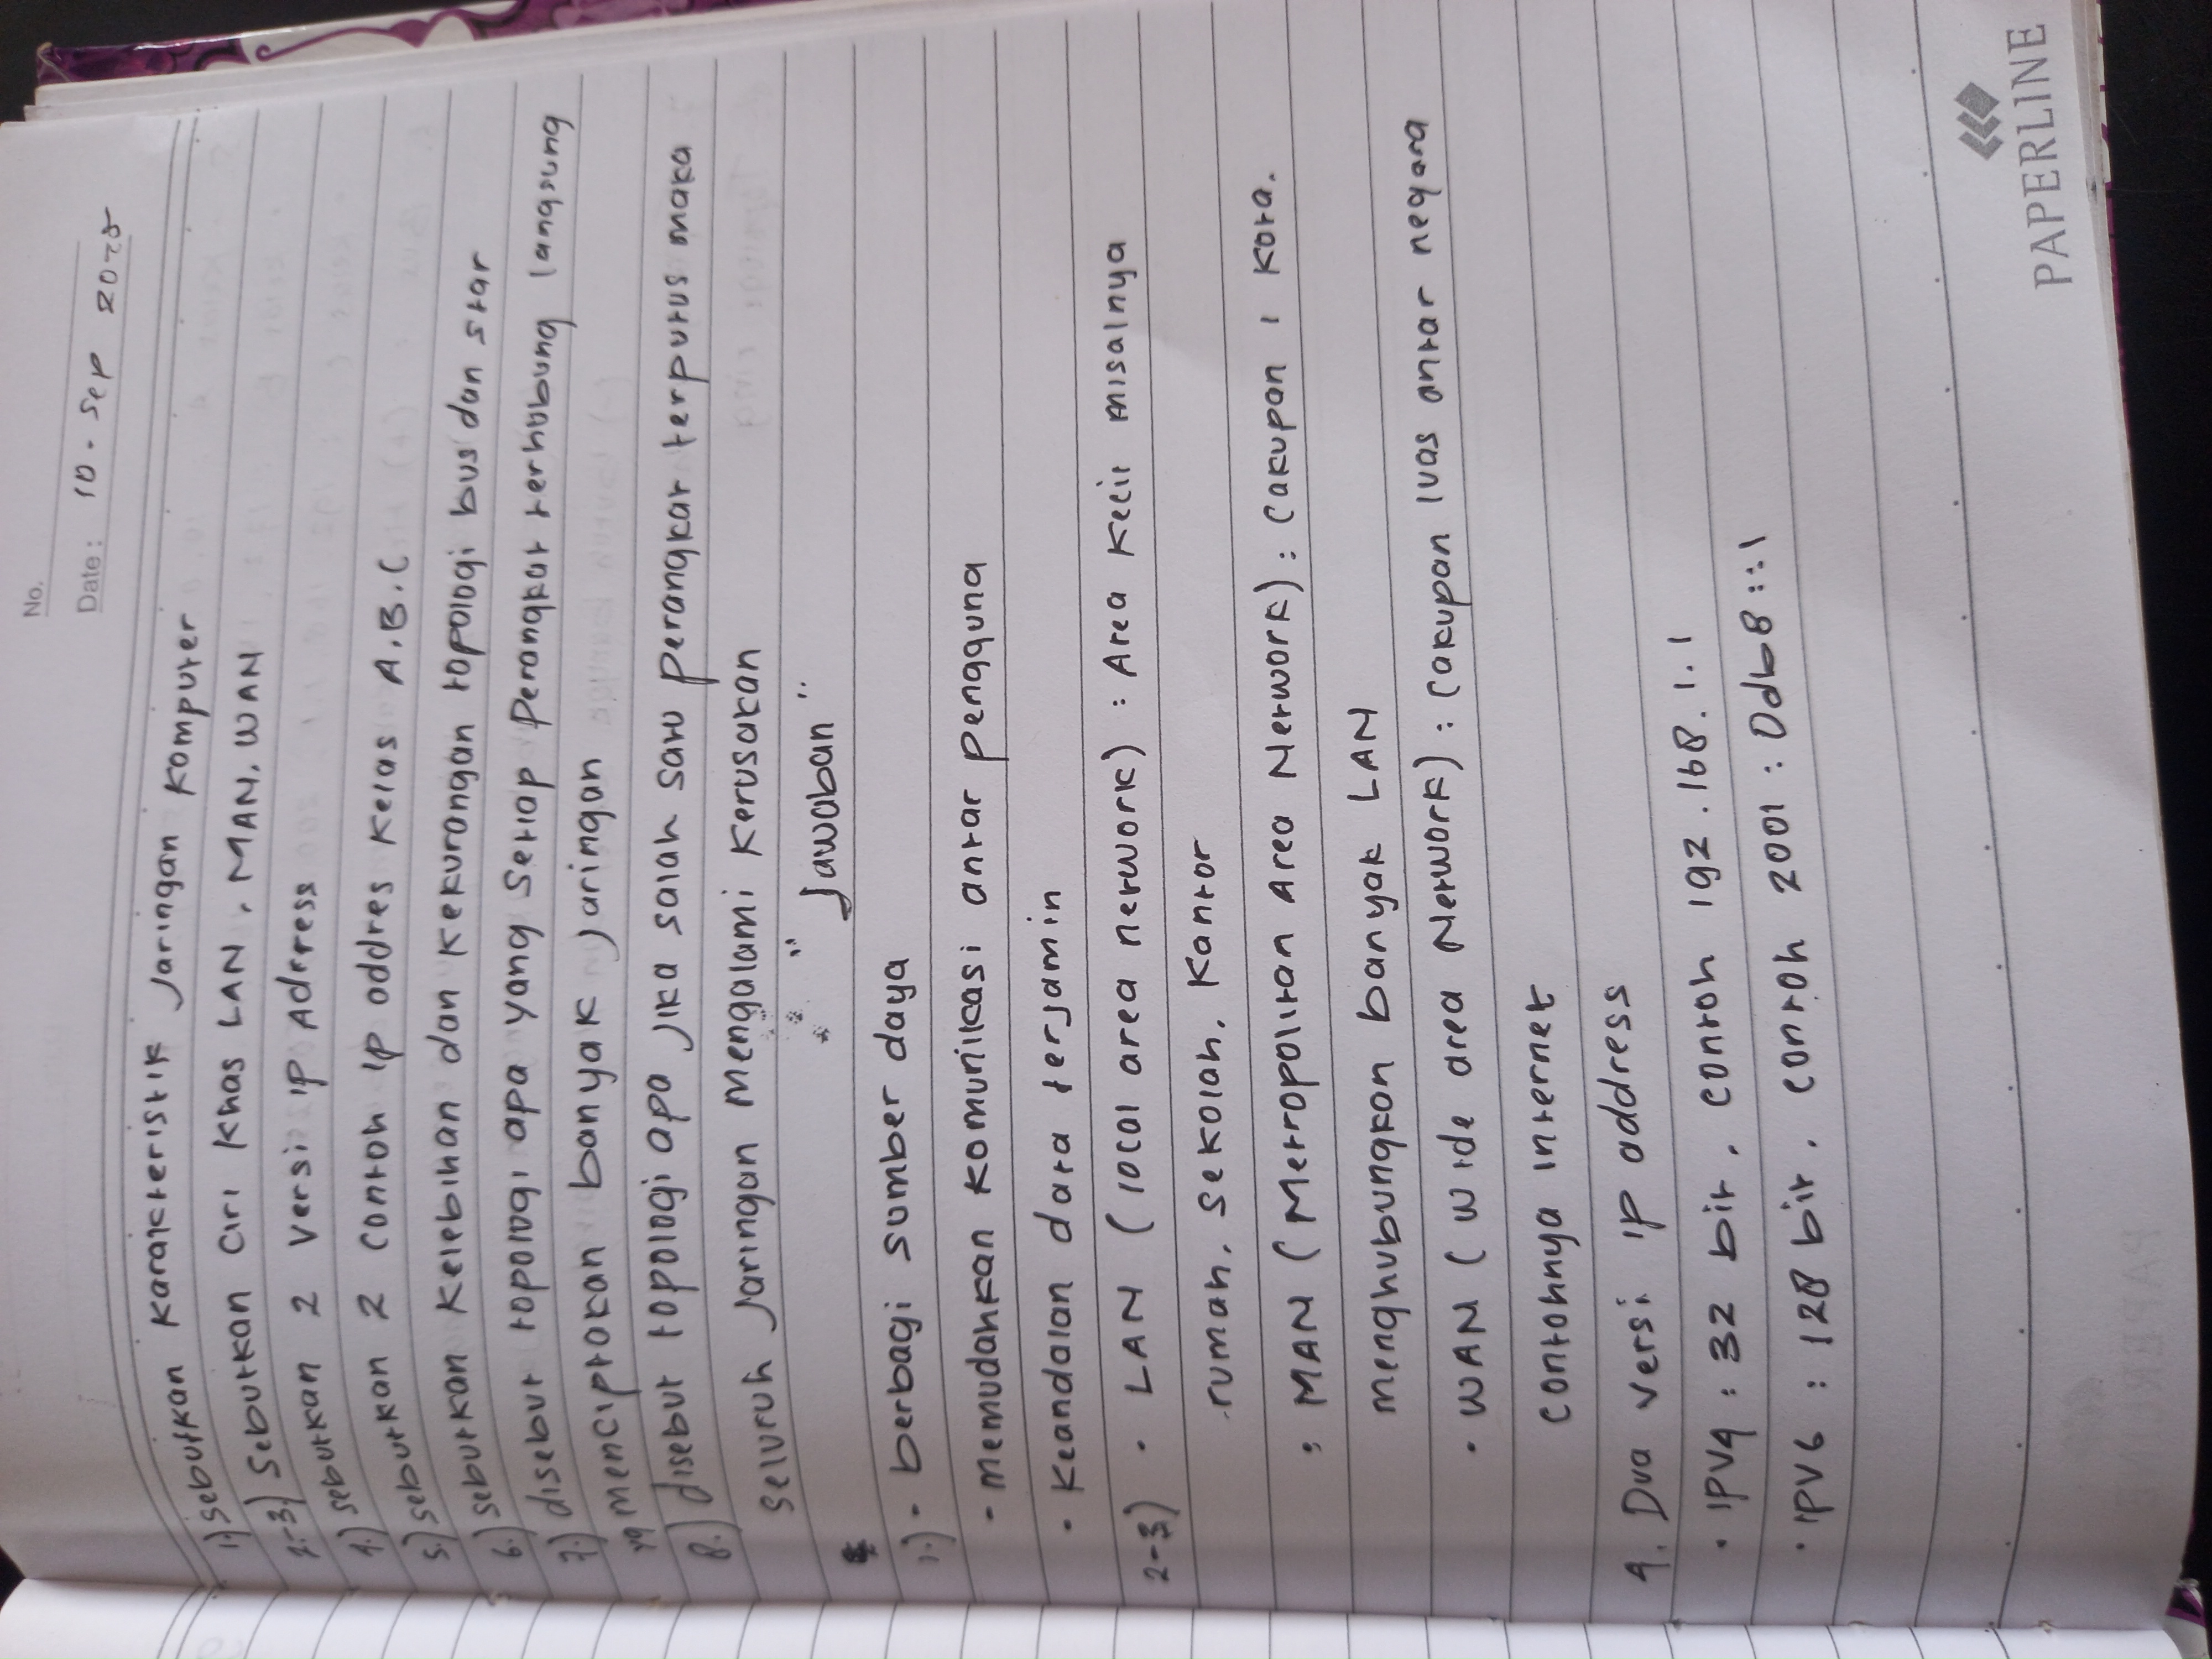 No.
Date : 10 - Sep 2025
1.) Sebutkan Karakteristik Jaringan Komputer
2-3.) Seburkan Ciri Khas LAN, MAN, WAN
4.) seburkan 2 Versi ip Adrress
5.) seburkan 2 Contoh ip addres Kelas A.B.C
6.) seburkan Kelebihan dan Kekurangan topologi bus dan star
7.) disebut topologi apa yang Setiap Perangkat terhubung langsung
yg menciptakan banyak jaringan
8.) disebut topologi apa jika salah satu perangkat terputus maka
seluruh Jaringan Mengalami Kerusakan
"Jawaban"
1.) - berbagi sumber daya
- Memudahkan komunikasi antar pengguna
- Keandalan data terjamin
2-3) • LAN (local area network) : Area Kecil misalnya
rumah, Sekolah, Kantor
: MAN (Metropolitan Area Network) : Cakupan 1 Kota.
menghubungkan banyak LAN
• WAN (Wide area Network) : Cakupan luas antar negara
Contohnya internet
4. Dua versi ip address
• IPV4 : 32 bit, contoh 192.168.1.1
• IPV6 : 128 bit, contoh 2001 : 0db8 :: 1
PAPERLINE